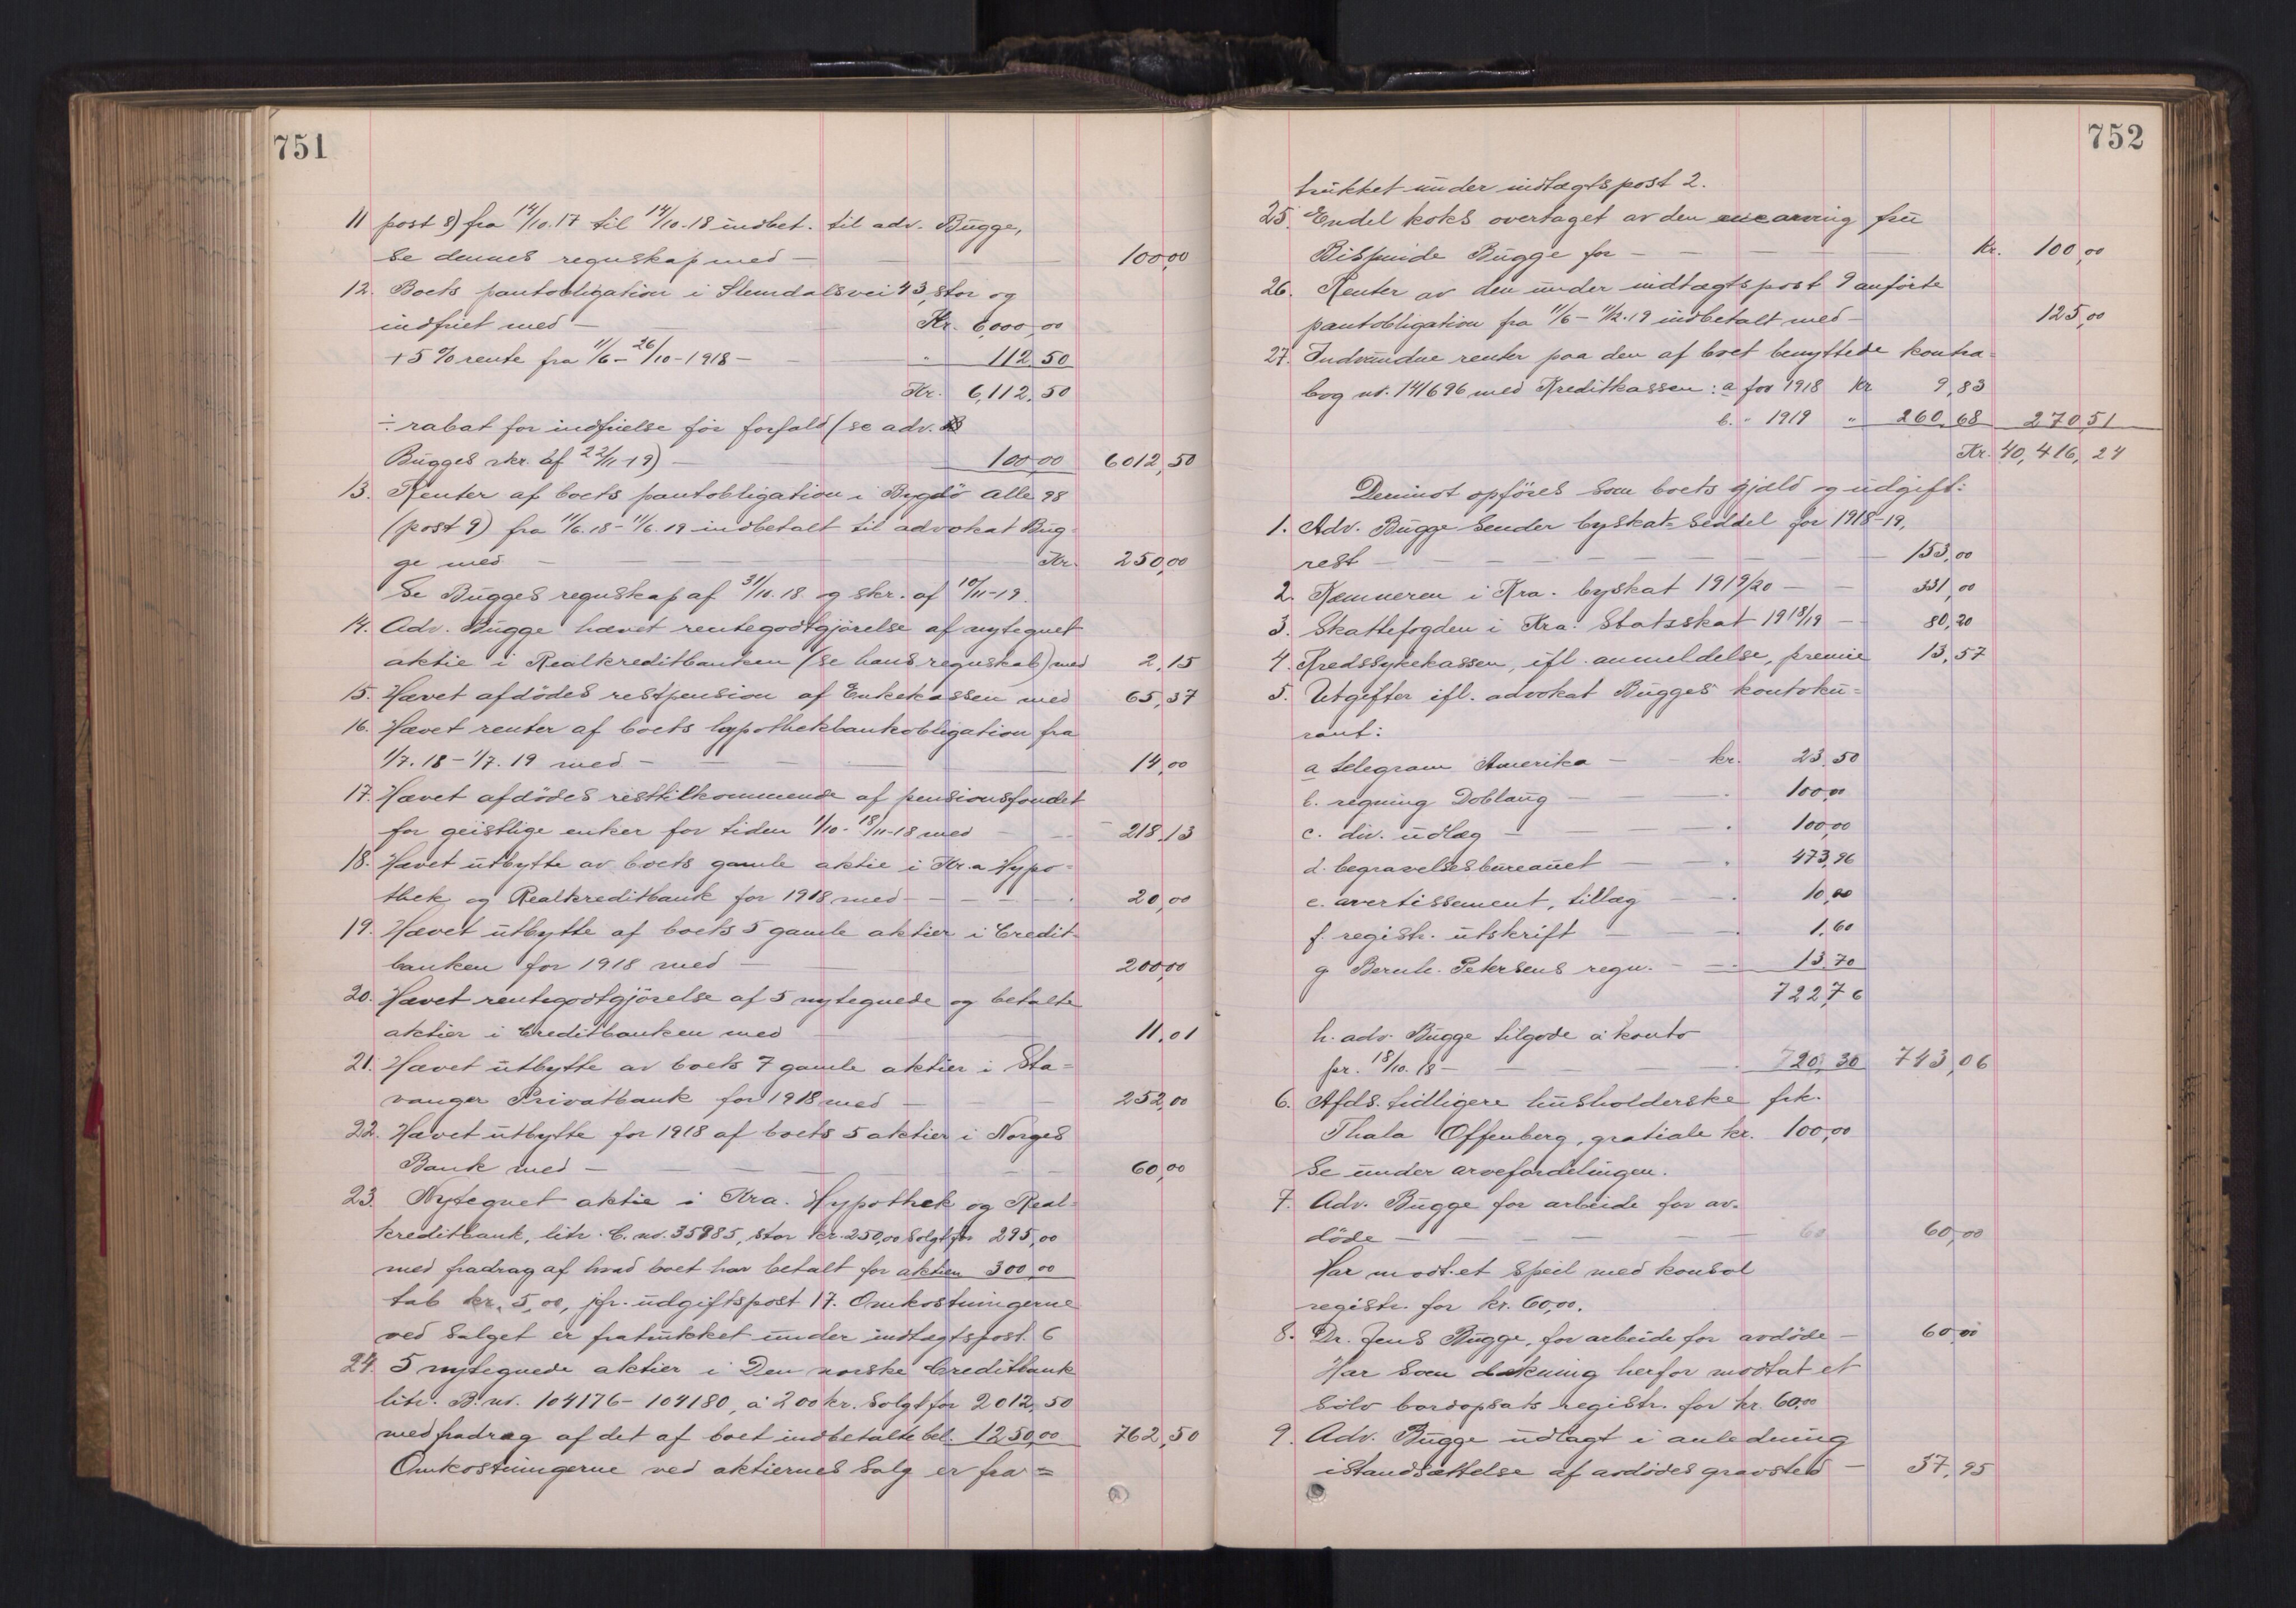 751
11 post 8) fra 14/10.17 til 14/10-18 indbet. til adv. Bugge,
se dennes regnskap med — 100,00
12. Boets pantobligation i Slemdalsvei 43, stor og
indfriet med — Kr. 6,000,00
+ 5 % rente fra 11/6 - 26/10-1918 — " 112,50
Kr. 6,112,50
÷ rabat for indfrielse för forfald (se adv.
Bugges skr. af 22/11-19) — 100,00 6012,50
13. Renter af boets pantobligation i Bygdö alle 98
(post 9) fra 11/6.18 - 11/6.19 indbetalt til advokat Bug-
ge med — Kr. 250,00
Se Bugges regnskap af 31/10.18 og skr. af 10/11-19.
14. Adv. Bugge hævet rentegodtgjörelse af nytegnet
aktie i Realkreditbanken (se hans regnskab) med 2,15
15. Hævet afdödes restpension af Enkekassen med 65,37
16. Hævet renter af boets hypothekbankobligation fra
1/7.18 - 1/7.19 med — 14,00
17. Hævet afdödes resttilkommende af pensionsfondet
for geistlige enker for tiden 1/10 - 18/11-18 med — 218,13
18. Hævet utbytte av boets gamle aktie i Kr.a Hypo-
thek og Realkreditbank for 1918 med — 20,00
19. Hævet utbytte af boets 5 gamle aktier i Credit-
banken for 1918 med — 200,00
20. Hævet rentegodtgjörelse af 5 nytegnede og betalte
aktier i Creditbanken med 11,01
21. Hævet utbytte av boets 7 gamle aktier i Sta-
vanger Privatbank for 1918 med — 252,00
22. Hævet utbytte for 1918 af boets 5 aktier i Norges
Bank med — 60,00
23. Nytegnet aktie i Kra. Hypothek og Real-
kreditbank, litr. C. no. 35985, stor kr. 250,00 solgt for 295,00
med fradrag af hvad boet har betalt for aktien 300,00
tab kr. 5,00, jfr. udgiftspost 17. Omkostningerne
ved salget er fratrukket under indtægtspost 6
24. 5 nytegnede aktier i Den norske Creditbank
litr. B. no. 104176 - 104180, à 200 kr. solgt for 2012,50
med fradrag af det af boet indbetalte bel. 1250,00 762,50
Omkostningerne ved aktiernes salg er fra=
752
trukket under indtægtspost 2.
25. Endel koks overtaget av den enearving fru
Bugge for — Kr. 100,00
26. Renter av den under indtægtspost 9 anförte
pantobligation fra 11/6 - 11/12.19 indbetalt med — 125,00
27. Indvundne renter paa den af boet benyttede kontra-
bog no. 141696 med Kreditkassen: a for 1918 kr 9,83
b. " 1919 " 260,68 270,51
Kr. 40,416,24
Derimot opföres som boets gjæld og udgift:
1. Adv. Bugge sender byskat-seddel for 1918-19,
rest — 153,00
2. Kemneren i Kra. byskat 1919/20 — 331,00
3. Skattefogden i Kra. Statsskat 1918/19 — 80,20
4. Kredssykekassen, ifl. anmeldelse, premie 13,57
5. Utgifter ifl. advokat Bugges kontoku=
rant:
a telegram Amerika — kr. 23,50
b. regning Dobloug — 100,00
c. div. udlæg — 100,00
d. begravelsesbureauet — 473,96
e. avertissement, tillæg — 10,00
f. registr. utskrift — 1,60
g Bernh. Petersens regn. — 13,70
722,76
h. adv. Bugge tilgode á konto
pr. 18/10.18 — 720,30 743,06
6. Afds. tidligere husholderske frk.
Thala Offenberg, gratiale kr. 100,00
Se under arvefordelingen.
7. Adv. Bugge for arbeide for av-
döde — 60 60,00
Har modt. et speil med konsol
registr. for kr. 60,00.
8. Dr. Jens Bugge, for arbeide for avdöde — 60,00
Har som dækning herfor modtat et
sölv bordopsats registr. for kr. 60,00
9. Adv. Bugge udlagt i anledning
istandsættelse af avdödes gravsted — 37,95